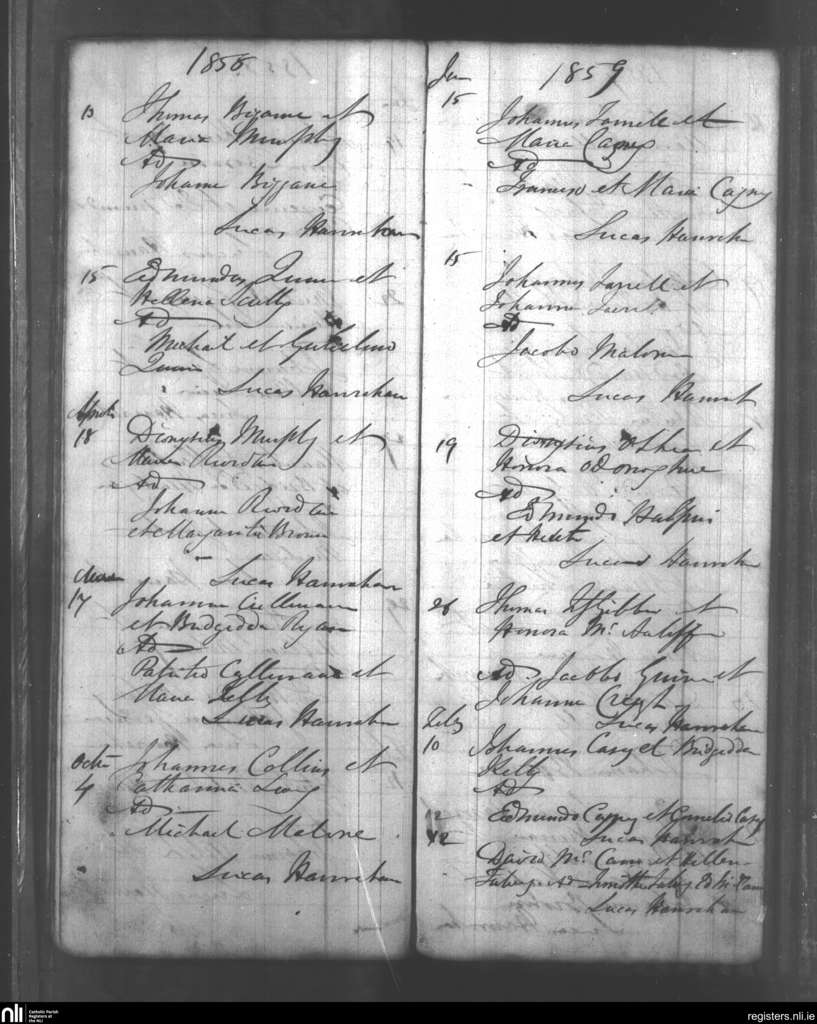 1858
13 Thomas Biggane et
Maria Murphy
Ad
Johanne Biggane
Lucas Hanrahan
15 Edmundus Quinn et
Hellena Scully
Ad
Michael et Gulielmo
Quinn
Lucas Hanrahan
April
18 Dionysius Murphy et
Maria Riordan
Ad
Johanne Riordan
et Margarita Brown
Lucas Hanrahan
17 Johannes Cullinane
et Bridgedda Ryan
Ad
Patritio Cullinane et
Maria Kelly
Lucas Hanrahan
Octr
4 Johannes Collins et
Catharina
Ad
Michael Malone
Lucas Hanrahan
Jan 1859
15 Johannes Farrell et
Maria Cagney
Ad
Francisco et Maria Cagney
Lucas Hanrahan
15 Johannes Farrell et
Johanna
Ad
Jacobo Malone
Lucas Hanrah
19 Dionysius O Shea et
Honora O Donoghue
Ad
Edmundo Halpin
et
Lucas Hanrahan
26 Thomas FtzGibbon et
Honora Mc Auliffe
Ad Jacobo et
Johanna
Lucas Hanrahan
Feby
10 Johannes Casey et Bridgedda
Kelly
Ad
12 Edmundo et Casey
Lucas Hanrah
12 David Mc Cann et Hellen
Ad
Lucas Hanrahan
nli Catholic Parish
Registers at
the NLI
registers.nli.ie